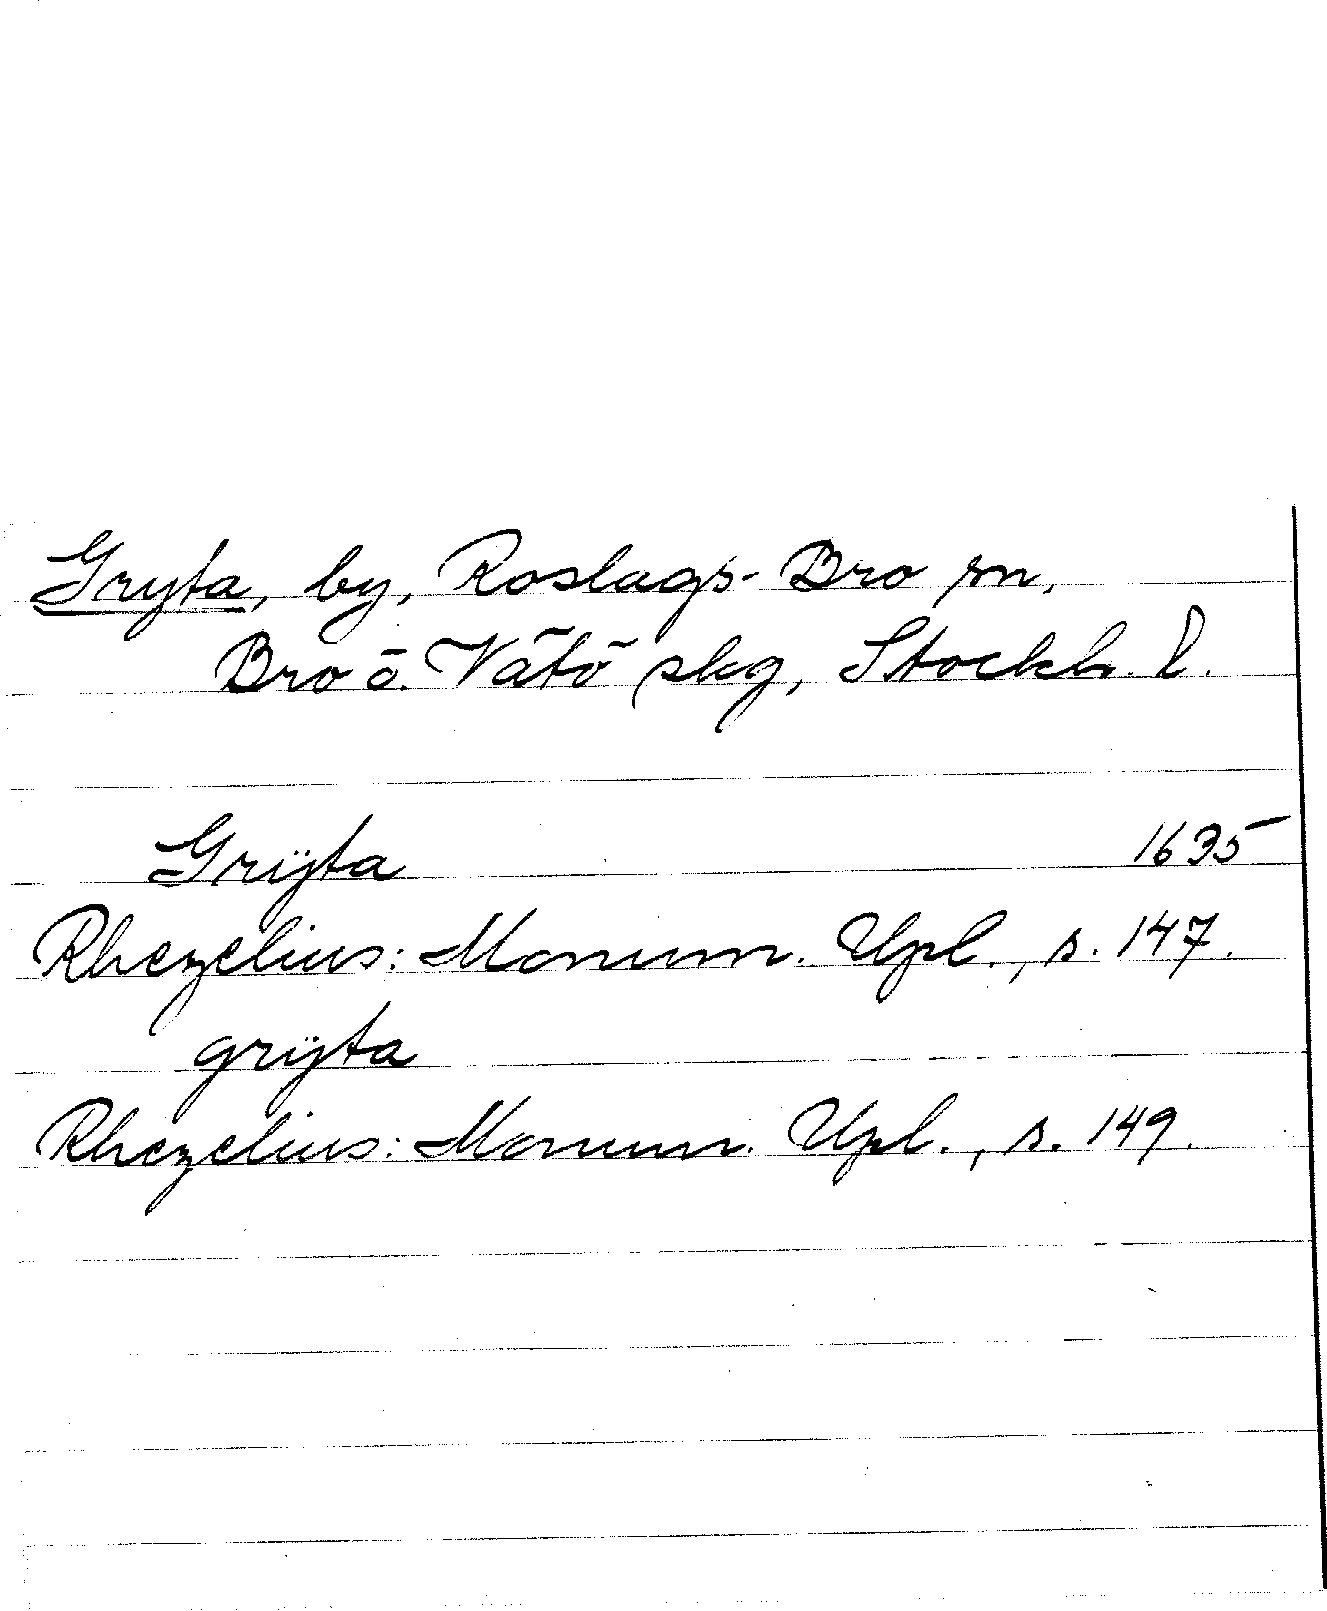 Gryta, by, Roslags-Bro sn,
Bro o. Vätö skg, Stockh. l.
Grÿta 1635
Rhezelius: Monum. Upl., s. 147.
grÿta
Rhezelius: Monum. Upl., s. 149.